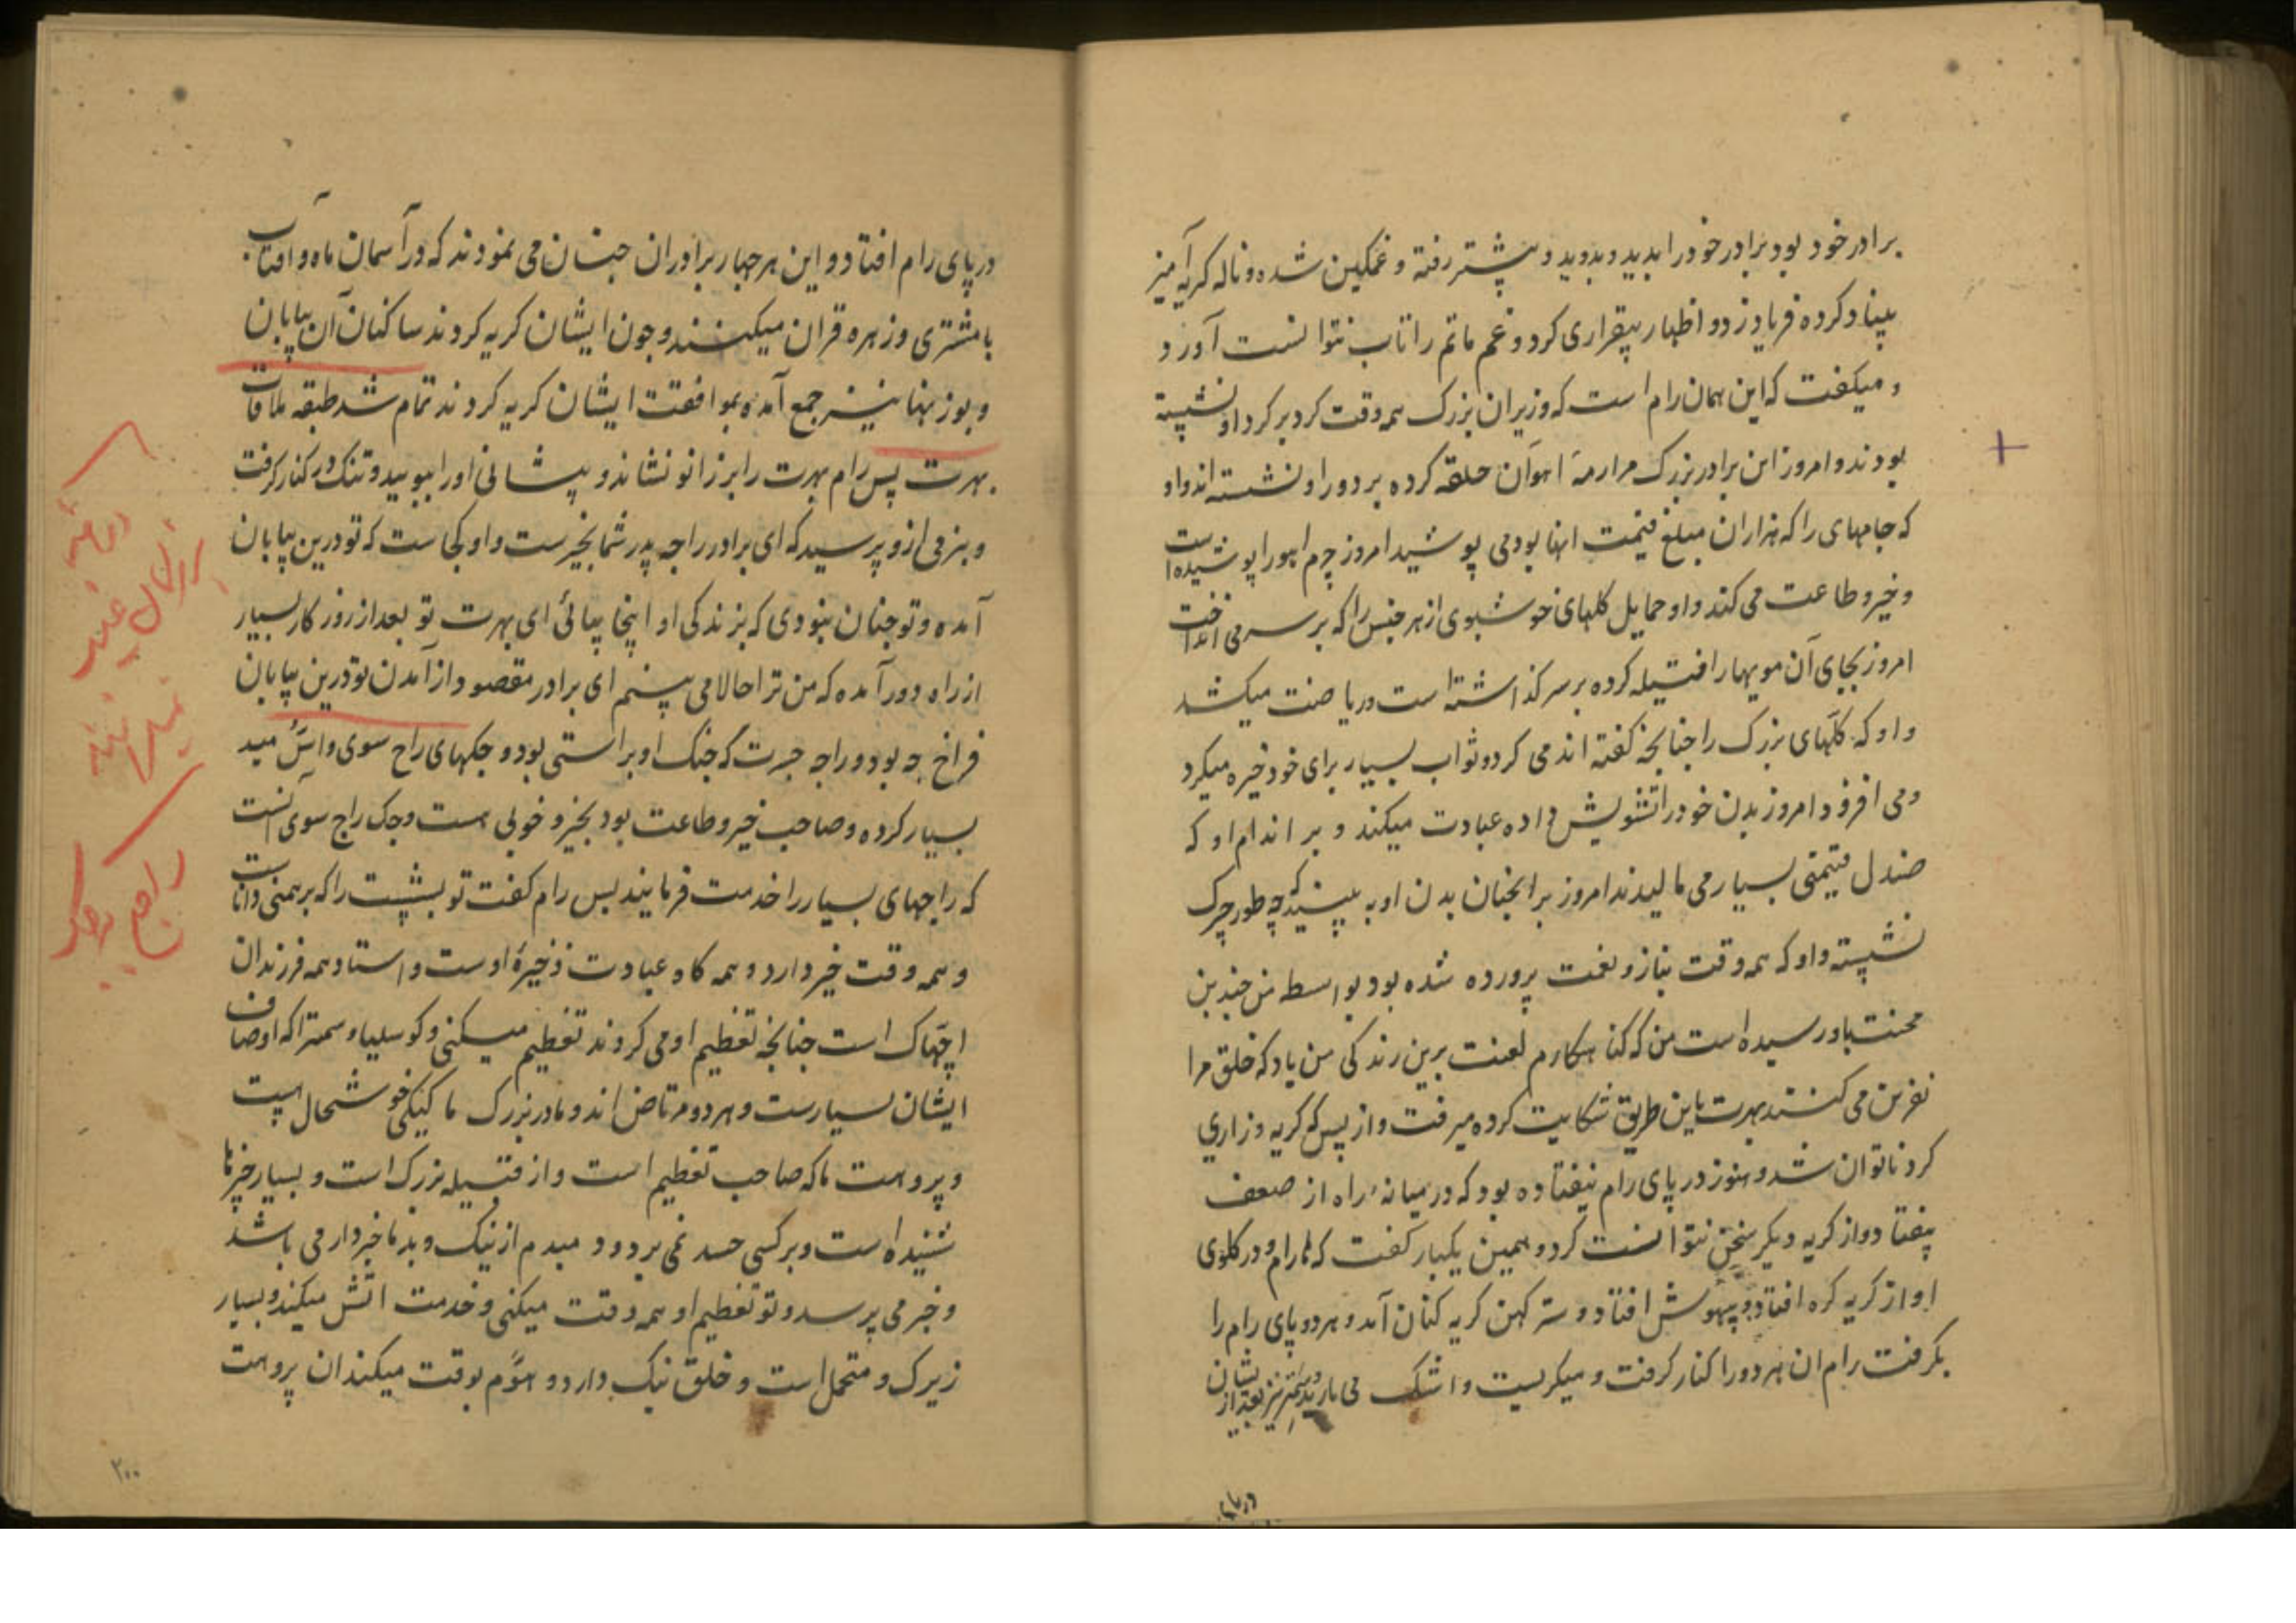 برادر خود بود برادر خود را بدید و بدوید و پیشتر رفته و غمکین شده و ناله کریه آمیز
بنیاد کرده فریاد زد و اظهار بیقراری کرد و غم ماتم را تاب نتوانست آورد
و میکفت که این همان رام است که وزیران بزرک همه وقت کرد بر کرد او نشسته
بودند و امروز این برادر بزرک مرا رمه اهوان حلقه کرده بر دور او نشسته اند و او
که جامهای را که هزاران مبلغ قیمت انها بود می پوشید امروز چرم اهو را پوشیده است
و خیر و طاعت می کند و او حمایل کلهای خوشبوی از هر جنس را که بر سر می انداخت
امروز بجای آن مویها را فتیله کرده بر سر کذاشته است و ریاضت میکشد
و او که جکهای بزرک را چنانچه کفته اند می کرد و ثواب بسیار برای خود ذخیره میکرد
و می افزود امروز بدن خود را تشویش داده عبادت میکند و بر اندام او که
صندل قیمتی بسیار می مالیدند امروز بر انچنان بدن او به بینید که چه طور چرک
نشسته و او که همه وقت بناز و نعمت پرورده شده بود بواسطه من چندین
محنت باو رسیده است من که کناهکارم لعنت برین زندکی من باد که خلق مرا
نفرین می کنند بهرت باین طریق شکایت کرده میرفت و از بس که کریه و زاری
کرد ناتوان شد و هنوز در پای رام نیفتاده بود که در میانه راه از ضعف
بیفتاد و از کریه دیکر سخن نتوانست کرد و همین یکبار کفت که ای رام و در کلوی
او از کریه کره افتاد و بیهوش افتاد و سترکهن کریه کنان آمد و هر دو پای رام را
بکرفت رام ان هر دو را کنار کرفت و میکریست و اشک می بارید و سمنتر نیز بعد از یشان
در پای
در پای رام افتاد و این هر چهار برادران چنان می نمودند که در آسمان ماه و افتاب
با مشتری و زهره قران میکنند و چون ایشان کریه کردند ساکنان آن بیابان
و بوزینها نیز جمع آمده بموافقت ایشان کریه کردند تمام شد طبقه ملاقات
بهرت پس رام بهرت را بر زانو نشاند و پیشانی او را ببویید و تنک در کنار کرفت
و بنرمی ازو پرسید که ای برادر راجه پدر شما بخیرست و او کجاست که تو درین بیابان
آمده و تو چنان نبودی که بزندکی او اینجا بیائی ای بهرت تو بعد از روزکار بسیار
از راه دور آمده که من ترا حالا می بینم ای برادر مقصود از آمدن تو درین بیابان
فراخ چه بود و راجه جسرت که جنک او براستی بود و جکهای راج سوی و اسمید
بسیار کرده و صاحب خیر و طاعت بود بخیر و خوبی هست و جک راج سوی آنست
که راجهای بسیار را خدمت فرمایند بس رام کفت تو بشست را که برهمنی داناست
و همه وقت خیر دارد و همه کاه عبادت ذخیرهٔ اوست و استاد همه فرزندان
اچهاک است چنانچه تعظیم او می کردند تعظیم میکنی و کوسلیا و سمترا که اوصاف
ایشان بسیارست و هر دو مرتاض اند و مادر بزرک ما کیکی خوشحال هست
و پروهت ما که صاحب تعظیم است و از قبیله بزرک است و بسیار چیزها
شنیده است و بر کسی حسد نمی برد و دمبدم از نیک و بد ما خبردار می باشد
و خبر می پرسد و تو تعظیم او همه وقت میکنی و خدمت اتش میکند و بسیار
زیرک و متحمل است و خلق نیک دارد و هوم بوقت میکند ان پروهت
راج
۲۰۰